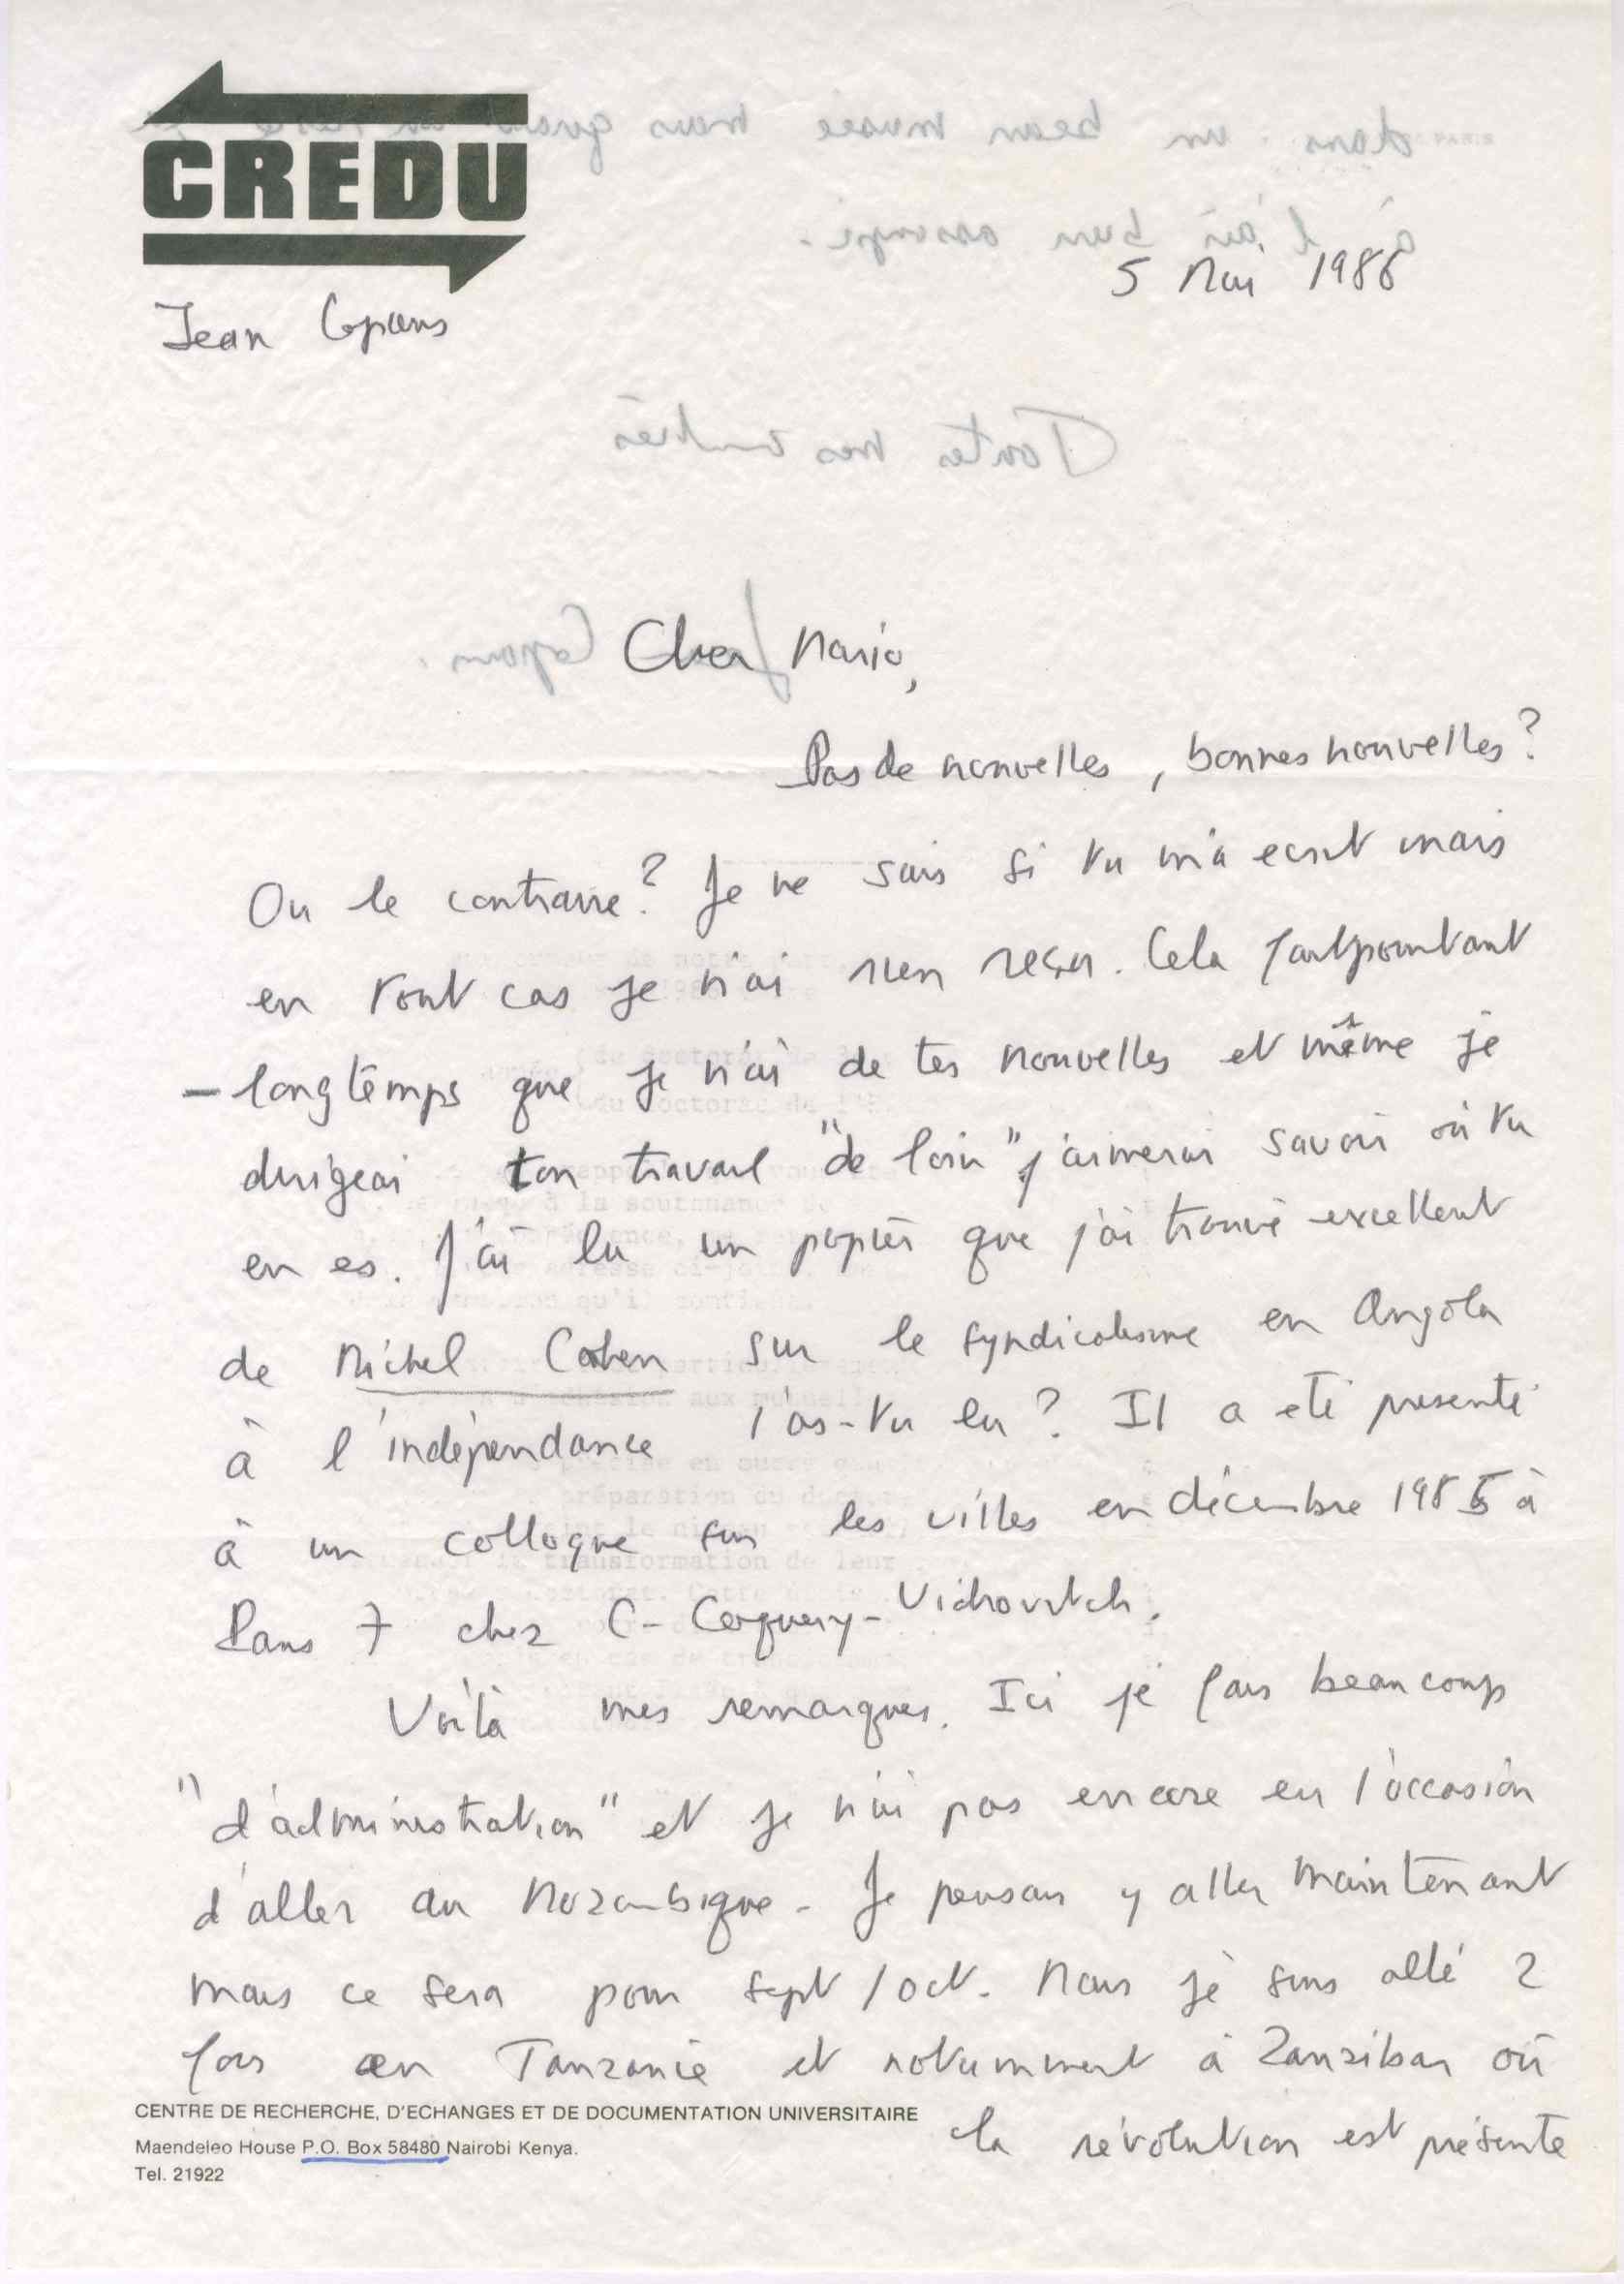 CREDU
Jean Copans
5 Mai 1986
Cher Mario,
Pas de nouvelles, bonnes nouvelles?
Ou le contraire? Je ne sais si tu m'a ecrit mais
en tout cas je n'ai rien reçu. Cela fait pourtant
- longtemps que je n'ai de tes nouvelles et même je
dirigeai ton travail "de loin" j'aimerai savoir où tu
en es. J'ai lu un papier que j'ai trouvé excellent
de Michel Cahen sur le syndicalisme en Angola
à l'indépendance l'as-tu lu? Il a eté presenté
à un colloque sur les villes en décembre 1985 à
Paris 7 chez C- Coquery-Vidrovitch.
Voilà mes remarques. Ici je fais beaucoup
"d'administration" et je n'ai pas encore eu l'occasion
d'aller au Mozambique. Je pensais y aller maintenant
mais ce sera pour sept/oct. Mais je suis allé 2
fois en Tanzanie et notamment à Zanzibar où
la révolution est présente
CENTRE DE RECHERCHE, D'ECHANGES ET DE DOCUMENTATION UNIVERSITAIRE
Maendeleo House P.O. Box 58480 Nairobi Kenya.
Tel. 21922